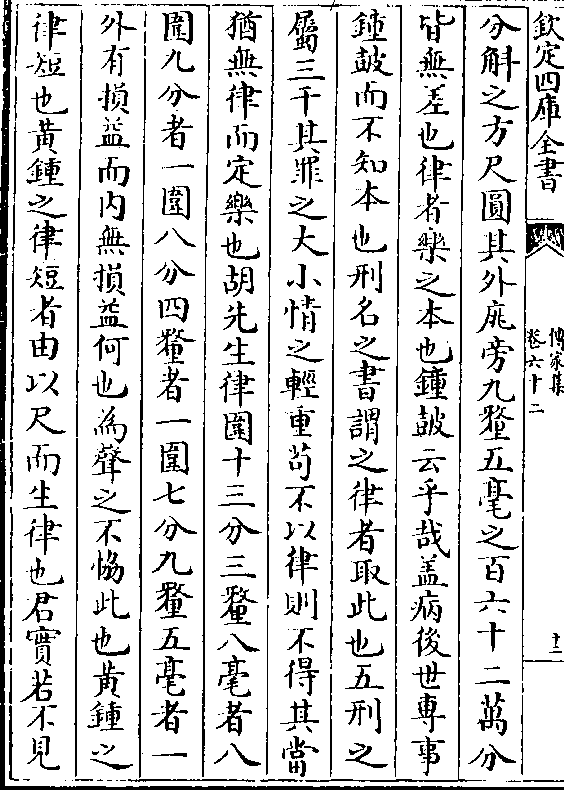 欽定四庫全書
傳家集
卷六十二
十二
分斛之方尺圓其外庣旁九氂五毫之百六十二萬分
皆無差也律者樂之本也鐘皷云乎哉盖病後世專事
鍾皷而不知本也刑名之書謂之律者取此也五刑之
屬三千其罪之大小情之輕重苟不以律則不得其當
猶無律而定樂也胡先生律圍十三分三氂八毫者八
圍九分者一圍八分四氂者一圍七分九氂五毫者一
外有損益而内無損益何也為聲之不恊此也黄鍾之
律短也黄鍾之律短者由以尺而生律也君實若不見